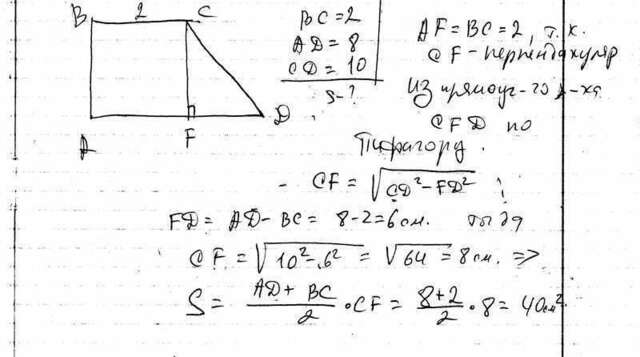 B 2 C
A F D
BC = 2
AD = 8
CD = 10
S - ?
AF = BC = 2, т.к.
CF - перпендикуляр
Из прямоуг-го Δ-ка
CFD по
Пифагору.
CF = √CD² - FD²
FD = AD - BC = 8 - 2 = 6 см. тогда
CF = √10² - 6² = √64 = 8 см. =>
S = AD + BC / 2 · CF = 8 + 2 / 2 · 8 = 40 см²